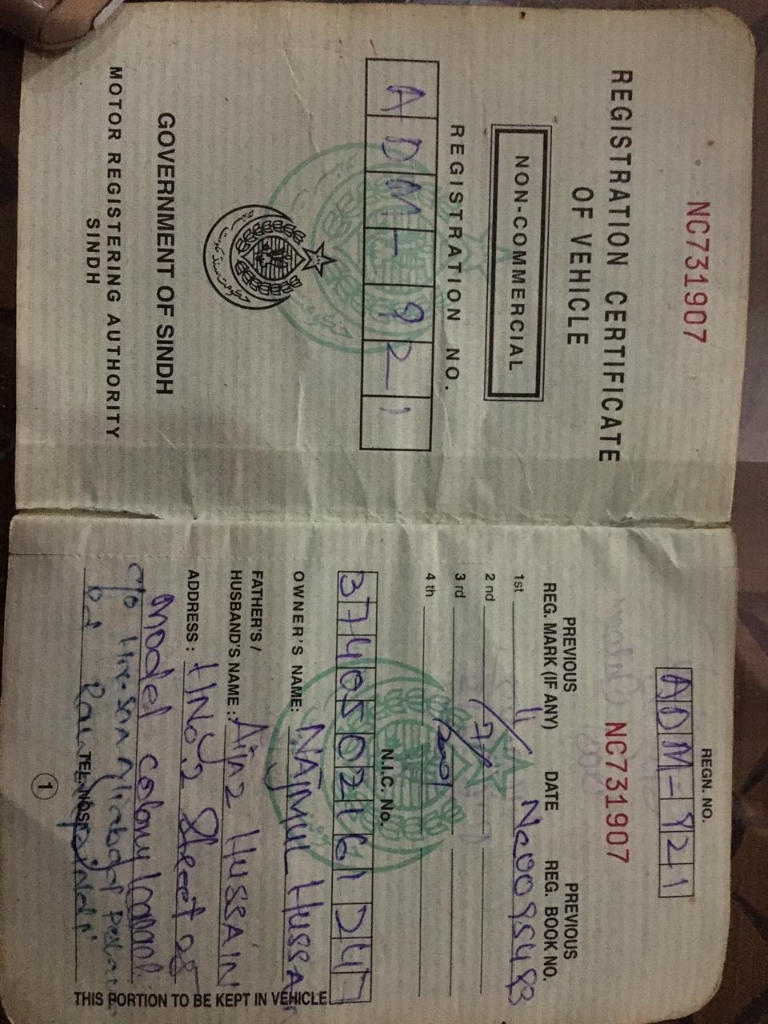 NC731907
REGISTRATION CERTIFICATE
OF VEHICLE
NON-COMMERCIAL
REGISTRATION NO.
ADM-921
GOVERNMENT OF SINDH
MOTOR REGISTERING AUTHORITY
SINDH
REGN. NO.
ADM-921
NC731907
PREVIOUS REG. MARK (IF ANY) DATE PREVIOUS REG. BOOK NO.
1st
2nd
3rd
4th
N.I.C. No.
OWNER'S NAME: NAJMUL HUSSA
FATHER'S /
HUSBAND'S NAME: HUSSAIN
ADDRESS: HNo 2 Street
Model Colony
c/o
Rd Rawalpindi
TEL. NOS
THIS PORTION TO BE KEPT IN VEHICLE
1